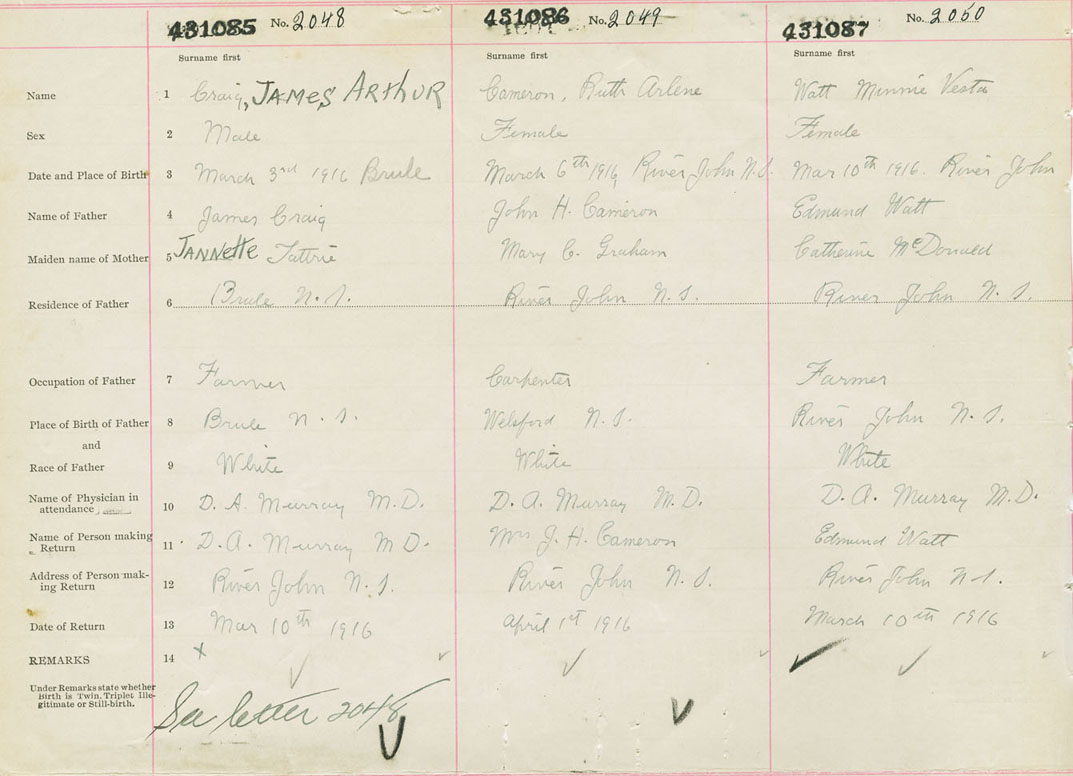 431085 No. 2048 431086 No. 2049 431087 No. 2050
Surname first Surname first Surname first
Name 1 Craig, JAMES ARTHUR Cameron, Ruth Arlene Watt Minnie Vesta
Sex 2 Male Female Female
Date and Place of Birth 3 March 3rd 1916 Brule March 6th 1916, River John N.S. Mar 10th 1916. River John
Name of Father 4 James Craig John H. Cameron Edmund Watt
Maiden name of Mother 5 JANNETTE Tattrie Mary C. Graham Catherine McDonald
Residence of Father 6 Brule N. S. River John N. S. River John N. S.
Occupation of Father 7 Farmer Carpenter Farmer
Place of Birth of Father 8 Brule N. S. Welsford N. S. River John N. S.
and
Race of Father 9 White White White
Name of Physician in
attendance 10 D. A. Murray M.D. D. A. Murray M.D. D. A. Murray M.D.
Name of Person making
Return 11 D. A. Murray M D. Mrs J. H. Cameron Edmund Watt
Address of Person mak-
ing Return 12 River John N. S. River John N. S. River John N. S.
Date of Return 13 Mar 10th 1916 April 1st 1916 March 10th 1916
REMARKS 14 x
Under Remarks state whether
Birth is Twin, Triplet Ille-
gitimate or Still-birth.
See letter 2048